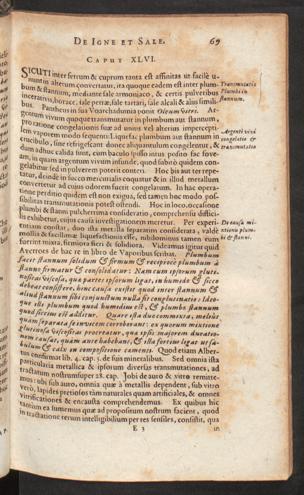 DE IGNE ET SALE. 69
CAPUT XLVI.
SICUTI inter ferrum & cuprum tanta est affinitas ut facilè u-
num in alterum convertatur, ita quoque eadem est inter plum-
bum & stannum, mediante sale armoniaco, & certis pulveribus
incerativis, borace, sale petræ, sale tartari, sale alcali & aliis simili-
bus. Pantheus in sua Voarchadumia ponit Oleum vitri. Ar-
gentum vivum quoque transmutatur in plumbum aut stannum,
pro ratione congelationis suæ ad unius vel alterius
lem vaporem modo sequenti: Liquefac plumbum aut stannum in
crucibulo, sine refrigescant donec aliquantulum congelentur, &
dum adhuc calida sunt, cum baculo ipsso intus posito fac fove-
am, in quam argentum vivum infunde, quod subitò quidem con-
gelabitur sed in pulverem poterit conteri. Hoc bis aut ter repe-
tatur, deinde in succo mercurialis coquatur & in illud metallum
convertetur ad cuius odorem fuerit congelatum. In hac opera-
tione perditio quidem est non exigua, sed tamen hoc modo pos-
sibilitas transmutationis potest ostendi. Hoc in loco, occasione
plumbi & stanni pulcherrima consideratio, comprehensu difficil-
lis exhibetur, cujus causa investigationem meretur. Per experi-
entiam constat, duo ista metalla separatim considerata, valdè
mollia & facillimæ liquefactionis esse, nihilominus tamen cum
fortiri mixta, firmiora fieri & solidiora. Videamus igitur quid
Averroes de hac re in libro de Vaporibus scribat. Plumbum
facit stannum solidum & firmum & reciprocè plumbum à
stanno firmatur & consolidatur: Nam cum ipsorum gluti-
nositas viscosa, quæ partes ipsorum ligat, in humido & sicco
debeat consistere, hinc causa est
aliud stannum sibi conjunctum nulla fit conglutinatio: Ideo-
que est plumbum quod humidius est, & plumbi stannum
quod siccius est additur. Quare ista duo commixta, melius
quàm separata sese invicem corroborant: ex quorum mixtione
glutinosa viscositas procreatur, quæ ipsis majorem duratio-
nem causat, quàm ante habebant, & ista fortius ligat ut sa-
bulum & calx in compositione cæmenti. Quod etiam Alber-
tus confirmat lib. 4. cap. 5. de suis mineralibus. Sed omnia ista
particularia metallica & ipsorum diversas transmutationes, ad
tractatum nostrum super 28. cap. Jobi de auro & vitro remitte-
mus: ubi sub auro, omnia quæ à metallis dependent, sub vitro
verò, lapides pretiosos tàm naturales quàm artificiales, & omnes
vitrificationes & encausta comprehendemus. Ex quibus hic
tantum ea sumemus quæ ad propositum nostrum faciunt, quod
in tractatione rerum intelligibilium per res sensiles, consistit, qua
E 3 in
Transmutatio
Plumbi in
stannum.
Argenti vivi
congelatio &
transmutatio
De causa mi-
xtionis plum-
bi & stanni.